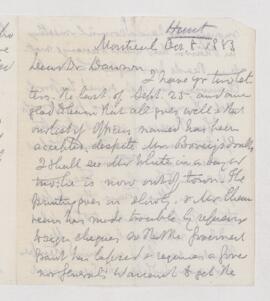 Hunt
Montreal Oct 8. 1883
Dear Dr. Dawson
I have yr two let
ters the last of Sept. 25. and am
glad to learn that all goes well & that
our list of officers named has been
accepted, despite Mr doubts
I shall see Mr White in a day or
two he is now out of town. The
printing goes on slowly. & Mr
has made trouble by refusing
to sign cheques so that the Government
grant has lapsed & requires a Gove
nor General's Warrant to get the